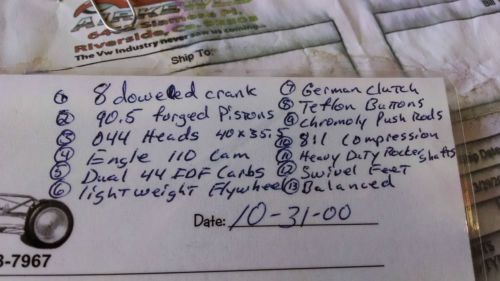 Riverside,
The Vw Industry never saw us coming...
Ship To:
① 8 doweled crank
② 90.5 forged Pistons
③ 044 Heads 40x35.5
④ Engle 110 Cam
⑤ Dual 44 IDF Carbs
⑥ lightweight Flywheel
⑦ German Clutch
⑧ Teflon Buttons
⑨ Chromoly Push Rods
⑩ 8:1 Compression
⑪ Heavy Duty Rocker shafts
⑫ Swivel Feet
⑬ Balanced
Date: 10-31-00
3-7967
Ship Date